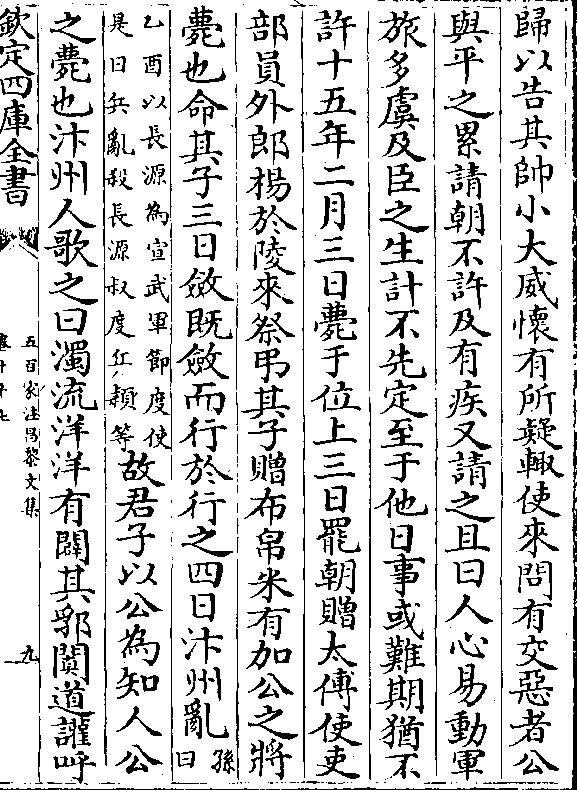 歸以告其帥小大威懷有所疑輙使來問有交惡者公
與平之累請朝不許及有疾又請之且曰人心易動軍
旅多虞及臣之生計不先定至于他日事或難期猶不
許十五年二月三日薨于位上三日罷朝贈太傅使吏
部員外郎楊於陵來祭弔其子贈布帛米有加公之將
薨也命其子三日斂既斂而行於行之四日汴州亂孫曰
乙酉以長源為宣武軍節度使
是日兵亂殺長源叔度丘頴等故君子以公為知人公
之薨也汴州人歌之曰濁流洋洋有闢其郛闐道讙呼
欽定四庫全書
五百家注昌黎文集
卷三十七
九